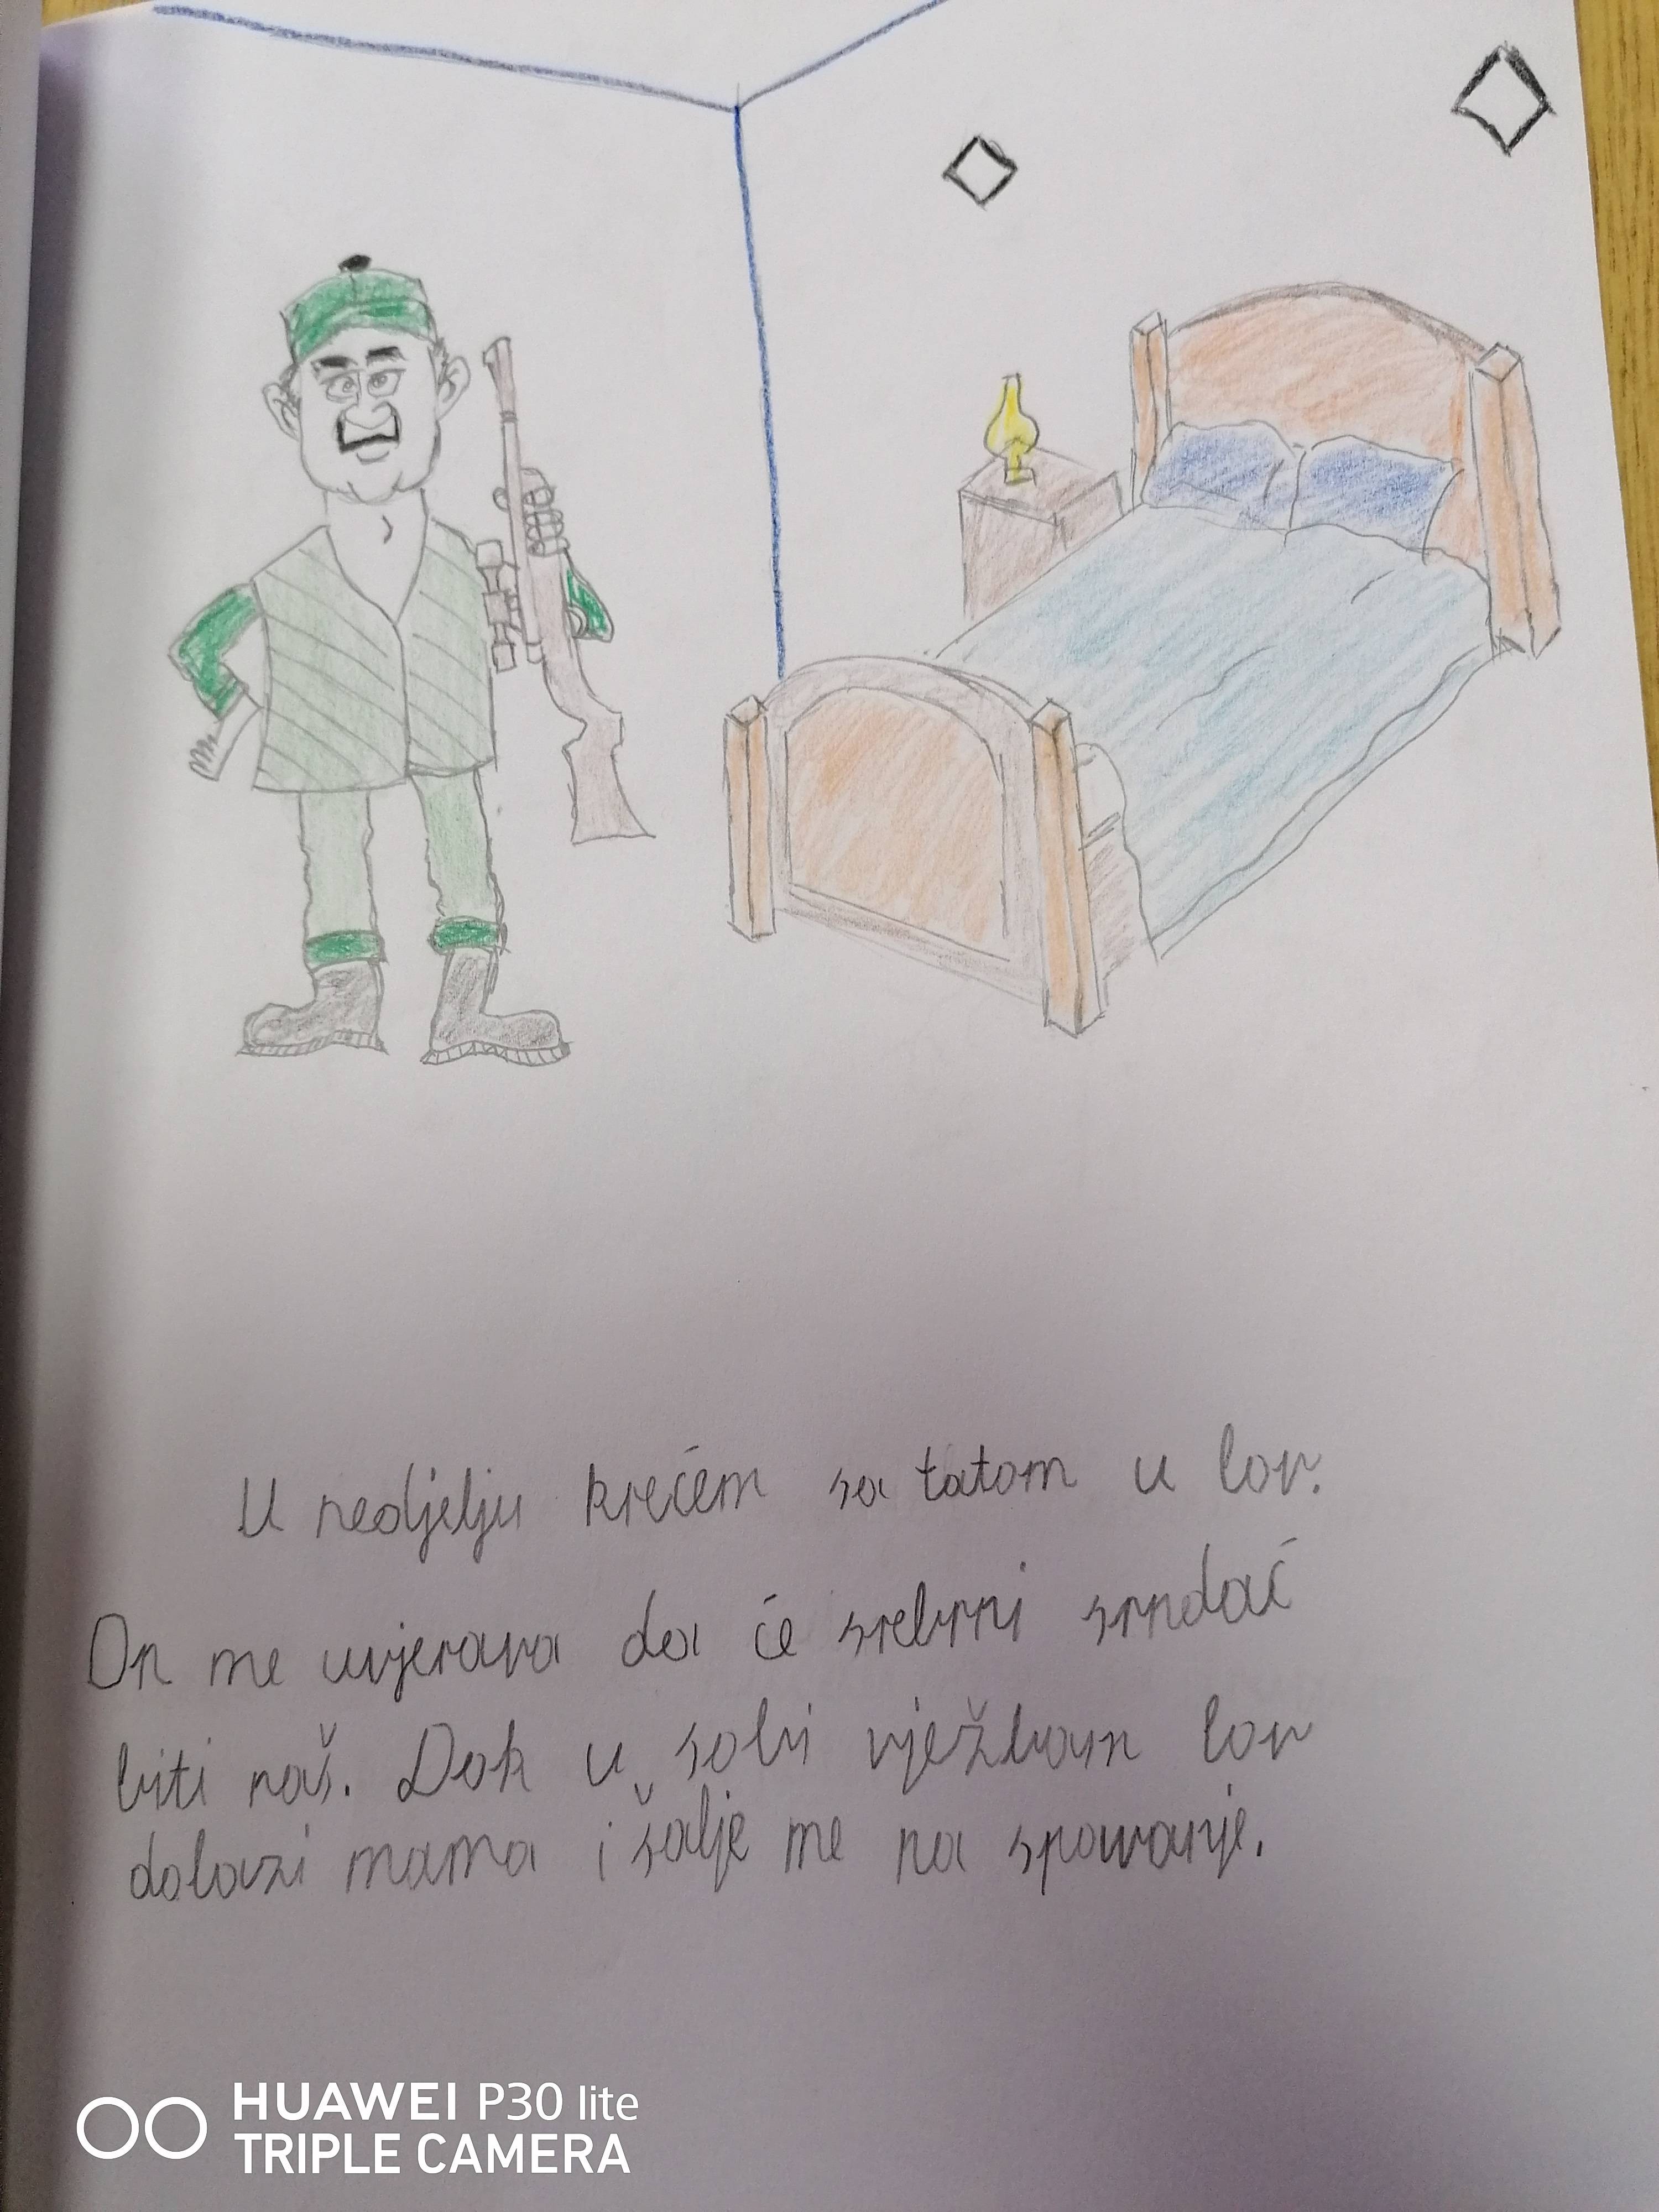 U nedjelju krećem sa tatom u lov.
On me uvjerava da će srebrni srndać
biti naš. Dok u sobi vježbam lov
dolazi mama i šalje me na spavanje.
HUAWEI P30 lite
TRIPLE CAMERA